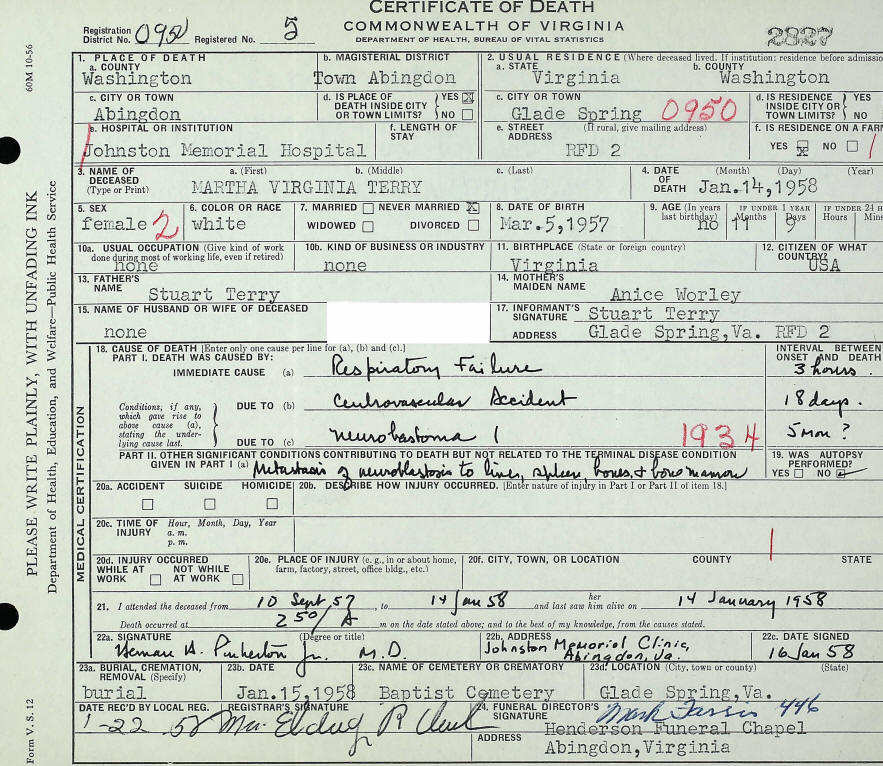 CERTIFICATE OF DEATH
COMMONWEALTH OF VIRGINIA
DEPARTMENT OF HEALTH, BUREAU OF VITAL STATISTICS
Registration District No. 0950 Registered No. 5
2827
60M 10-56
PLEASE WRITE PLAINLY, WITH UNFADING INK
Department of Health, Education, and Welfare—Public Health Service
Form V. S. 12
1. PLACE OF DEATH
a. COUNTY Washington
b. MAGISTERIAL DISTRICT Town Abingdon
2. USUAL RESIDENCE (Where deceased lived. If institution: residence before admissio
a. STATE Virginia
b. COUNTY Washington
c. CITY OR TOWN Abingdon
d. IS PLACE OF DEATH INSIDE CITY OR TOWN LIMITS? YES ☒ NO ☐
c. CITY OR TOWN Glade Spring 0950
d. IS RESIDENCE INSIDE CITY OR TOWN LIMITS? YES NO
e. HOSPITAL OR INSTITUTION Johnston Memorial Hospital
f. LENGTH OF STAY
e. STREET ADDRESS (If rural, give mailing address) RFD 2
f. IS RESIDENCE ON A FARM YES ☒ NO ☐
3. NAME OF DECEASED (Type or Print) a. (First) b. (Middle) c. (Last)
MARTHA VIRGINIA TERRY
4. DATE OF DEATH (Month) (Day) (Year) Jan.14,1958
5. SEX female 2
6. COLOR OR RACE white
7. MARRIED ☐ NEVER MARRIED ☒ WIDOWED ☐ DIVORCED ☐
8. DATE OF BIRTH Mar.5,1957
9. AGE (In years last birthday) no IF UNDER 1 YEAR Months 11 Days 9 IF UNDER 24 H Hours Mins
10a. USUAL OCCUPATION (Give kind of work done during most of working life, even if retired) none
10b. KIND OF BUSINESS OR INDUSTRY none
11. BIRTHPLACE (State or foreign country) Virginia
12. CITIZEN OF WHAT COUNTRY? USA
13. FATHER'S NAME Stuart Terry
14. MOTHER'S MAIDEN NAME Anice Worley
15. NAME OF HUSBAND OR WIFE OF DECEASED none
17. INFORMANT'S SIGNATURE Stuart Terry
ADDRESS Glade Spring,Va. RFD 2
MEDICAL CERTIFICATION
18. CAUSE OF DEATH [Enter only one cause per line for (a), (b) and (c).]
INTERVAL BETWEEN ONSET AND DEATH
PART I. DEATH WAS CAUSED BY:
IMMEDIATE CAUSE (a) Respiratory Failure 3 hours.
Conditions, if any, which gave rise to above cause (a), stating the underlying cause last.
DUE TO (b) Cerebrovascular Accident 18 days.
DUE TO (c) neuroblastoma 1934 5 Mon?
PART II. OTHER SIGNIFICANT CONDITIONS CONTRIBUTING TO DEATH BUT NOT RELATED TO THE TERMINAL DISEASE CONDITION GIVEN IN PART I (a) Metastasis of neuroblastosis to liver, spleen, bones, + bone marrow
19. WAS AUTOPSY PERFORMED? YES ☐ NO ☑
20a. ACCIDENT ☐ SUICIDE ☐ HOMICIDE ☐
20b. DESCRIBE HOW INJURY OCCURRED. [Enter nature of injury in Part I or Part II of item 18.]
20c. TIME OF INJURY Hour, Month, Day, Year a. m. p. m.
20d. INJURY OCCURRED WHILE AT WORK ☐ NOT WHILE AT WORK ☐
20e. PLACE OF INJURY (e. g., in or about home, farm, factory, street, office bldg., etc.)
20f. CITY, TOWN, OR LOCATION COUNTY STATE
21. I attended the deceased from 10 Sept 57, to 14 Jan 58 and last saw her alive on 14 January 1958
Death occurred at 2 50/A m on the date stated above; and to the best of my knowledge, from the causes stated.
22a. SIGNATURE (Degree or title) Herman H. Pinkerton Jr. M.D.
22b. ADDRESS Johnston Memorial Clinic, Abingdon, Va.
22c. DATE SIGNED 16 Jan 58
23a. BURIAL, CREMATION, REMOVAL (Specify) burial
23b. DATE Jan.15,1958
23c. NAME OF CEMETERY OR CREMATORY Baptist Cemetery
23d. LOCATION (City, town or county) (State) Glade Spring,Va.
DATE REC'D BY LOCAL REG. 1-22-58
REGISTRAR'S SIGNATURE
24. FUNERAL DIRECTOR'S SIGNATURE 446
Henderson Funeral Chapel
ADDRESS Abingdon,Virginia